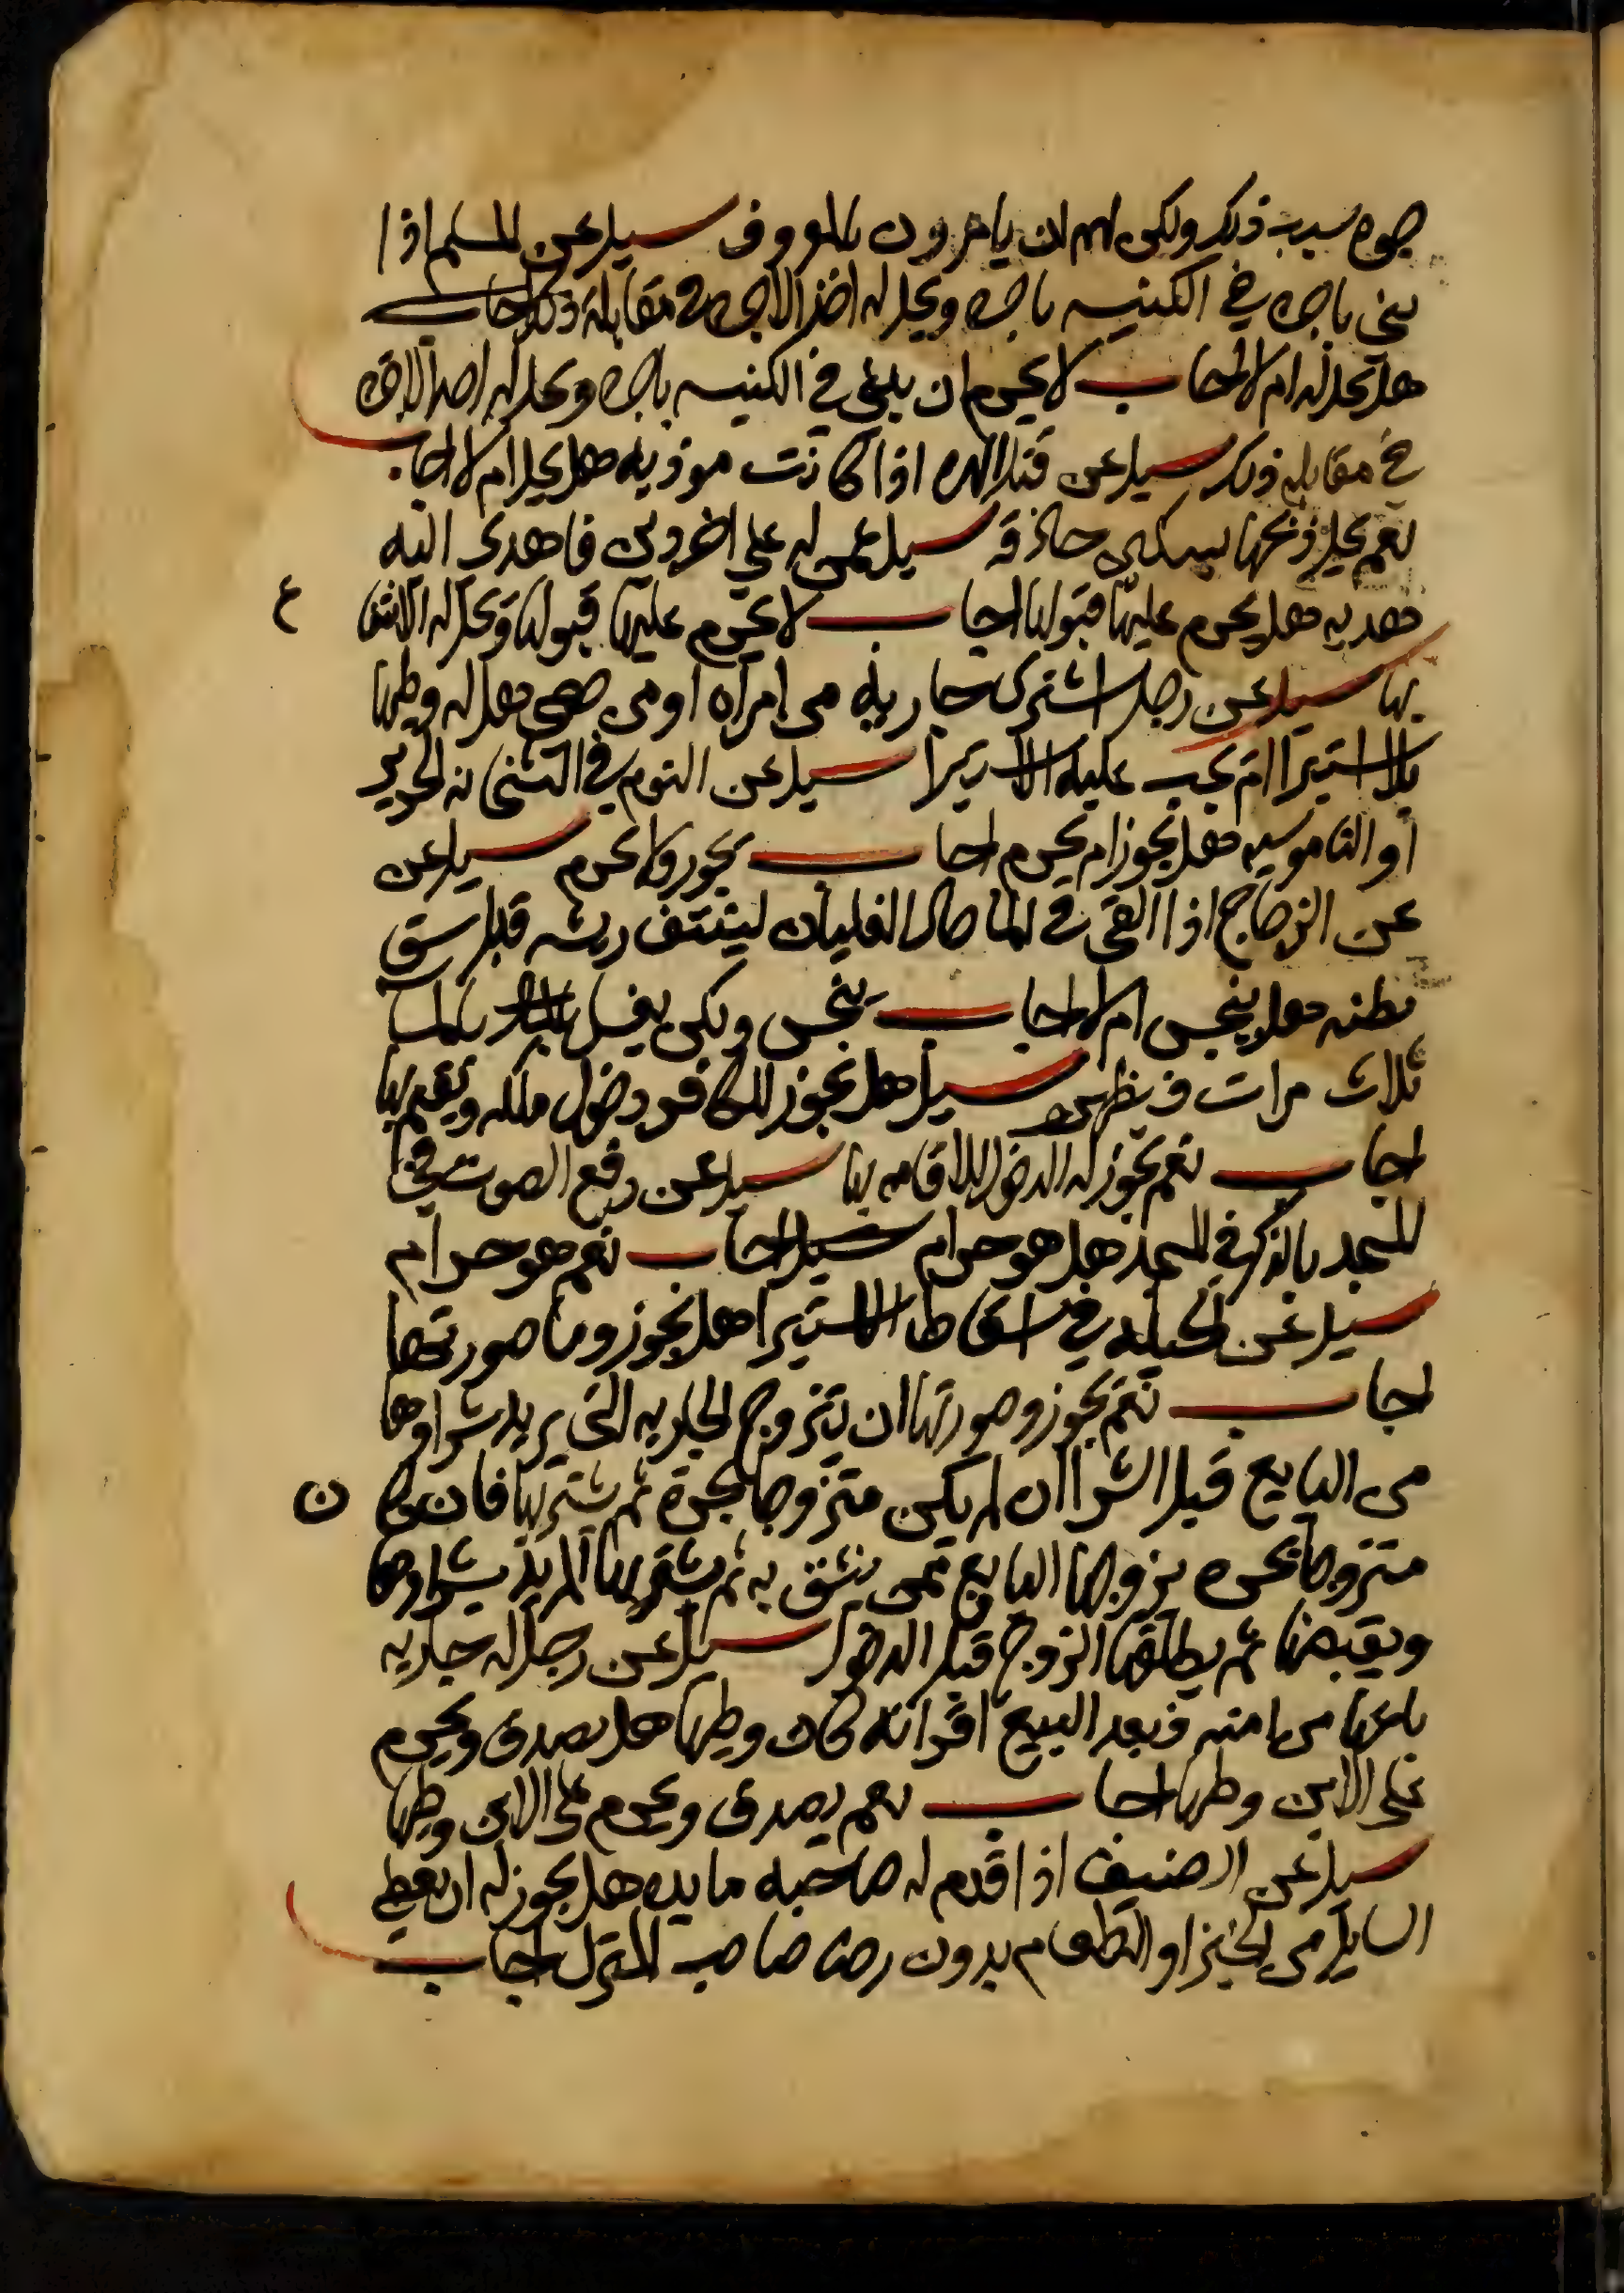 بسبب ذلك ولكن لهم ان يامرون بالمعروف سيل عن المسلم اذا
بنى باجره في الكنيسه باجره ويحل له اخذ الاجره في مقابلة ذلك اجاب
هل تحل له ام لا اجاب لا يحرم ان يبني في الكنيسه باجره ويحل له اخذ الاجره
في مقابله ذلك سيل عن قتل الهره اذا كانت موذيه هل يحل ام لا اجاب
نعم يحل ذبحها بسكين حاذقه سيل عمن له على اخر دين فاهدى اليه
هديه هل يحرم عليه قبولها اجاب لا يحرم عليه قبولها ويحل له الانتفاع
بها سيل عن رجل اشترى جاريه من امراه او من صبي هل له وطيها
بلا استبرا ام يجب عليه الاستبرا سيل عن النوم في البشخانه الحرير
او الناموسيه هل يجوز ام يحرم اجاب يجوز ولا يحرم سيل عن
عن الدجاج اذا القى في الما حال الغليان لينتتف ريشه قبل شق
بطنه هل ينجس ام لا اجاب ينجس ولكن يغسل بالما
ثلاث مرات فيطهر سيل هل يجوز للكافر دخول مكه ويقيم بها
اجاب نعم يجوز له الدخول للاقامه بها سيل عن رفع الصوت في
المسجد بالذكر في المسجد هل هو حرام سيل اجاب نعم هو حرام
سيل عن الحيله في اسقاط الاستبرا هل يجوز وما صورتها
اجاب نعم يجوز وصورتها ان يتزوج الجاريه التي يريد شراوها
من البايع قبل الشرا ان لم يكن متزوجا بحرة ثم يشتريها فان كان
متزوجا بحره يزوجها البايع ممن يثق به ثم يشتريها المريد شراوها
ويقبضها ثم يطلقها الزوج قبل الدخول سيل عن رجل له جاريه
باعها من ابنه فبعد البيع اقر انه كان وطيها هل يصدق ويحرم
على الابن وطيها اجاب نعم يصدق ويحرم على الابن وطيها
سيل عن الضيف اذا قدم له صاحبه مايده هل يجوز له ان يعطي
السايل من الخبز او الطعام بدون رضا صاحب المنزل اجاب
ع
ن